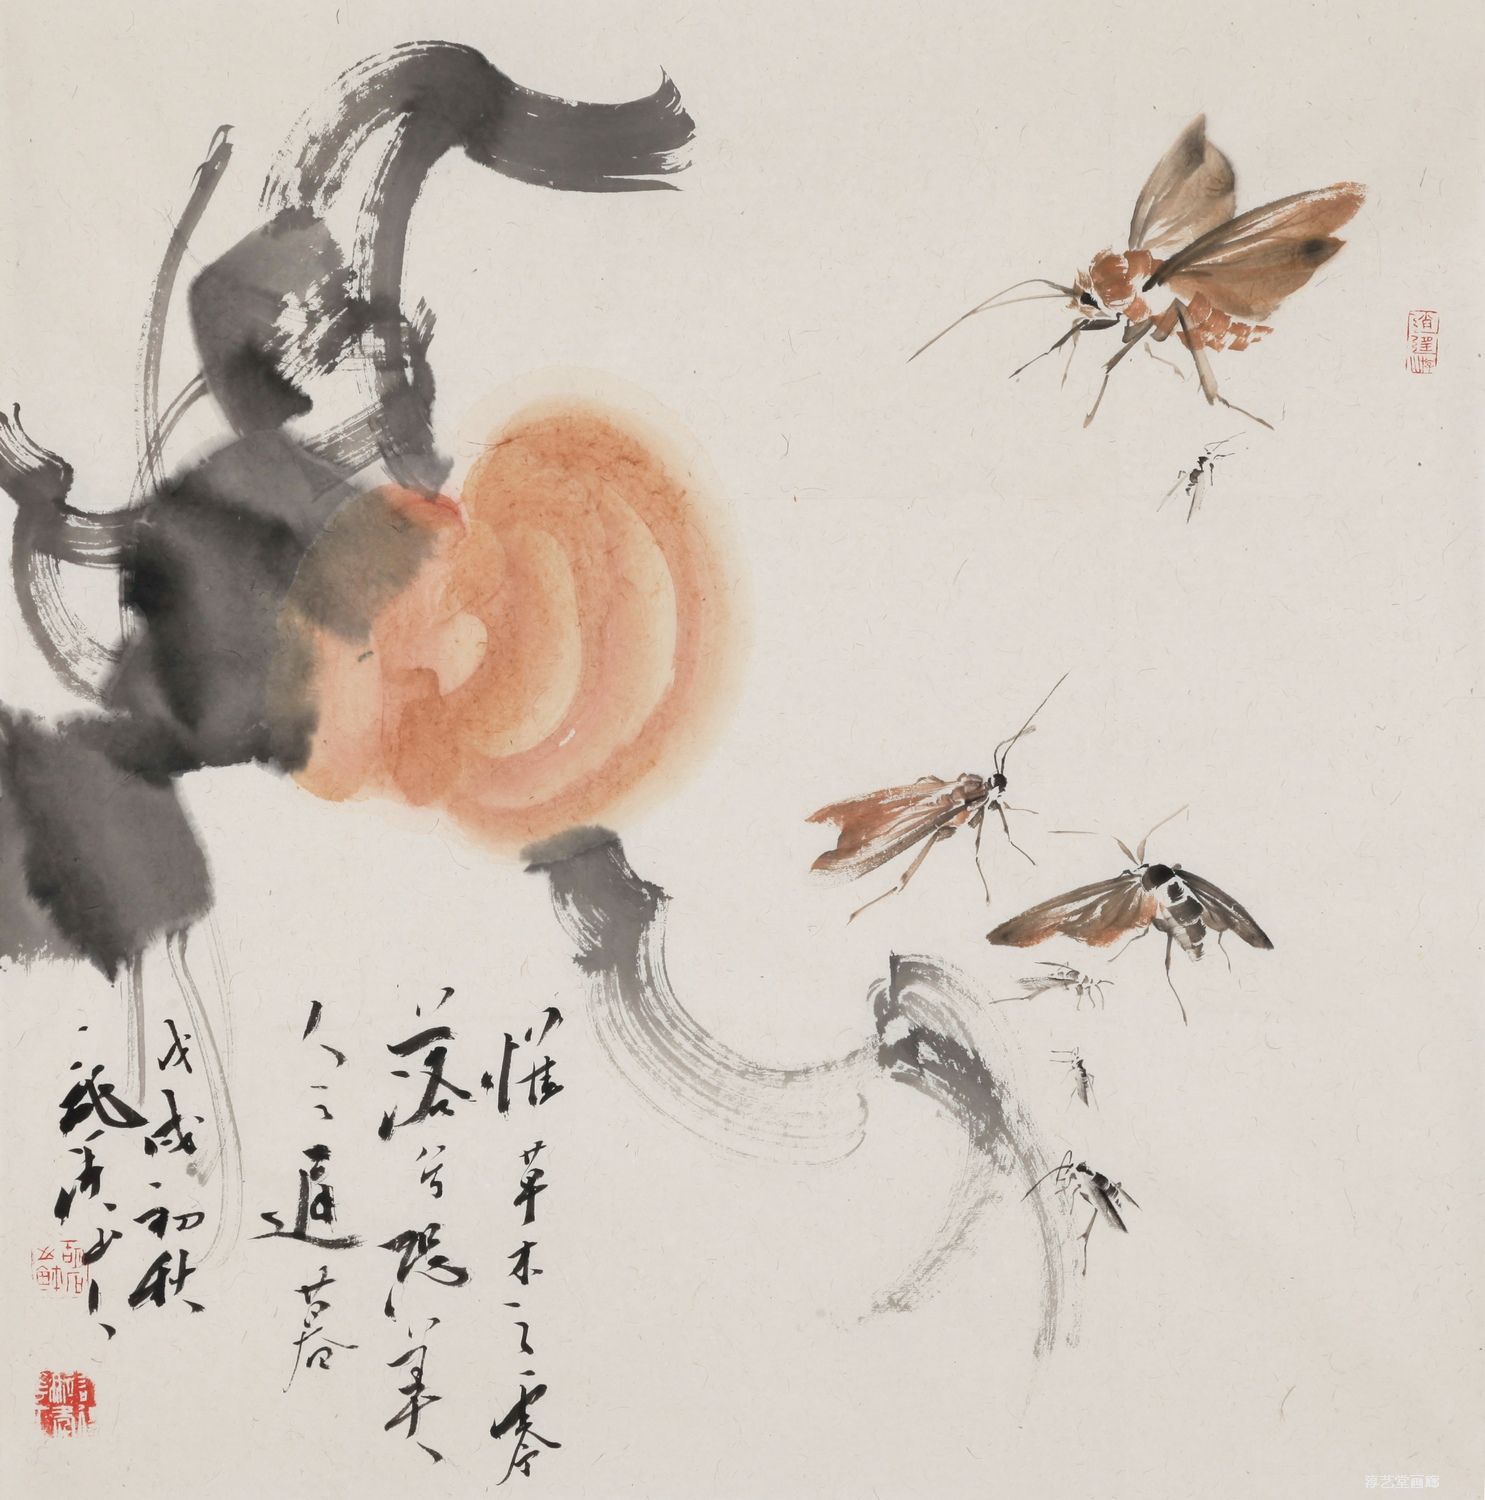 惟草木之零
落兮恐美
人之遲暮
戊戌初秋
淳艺堂画廊